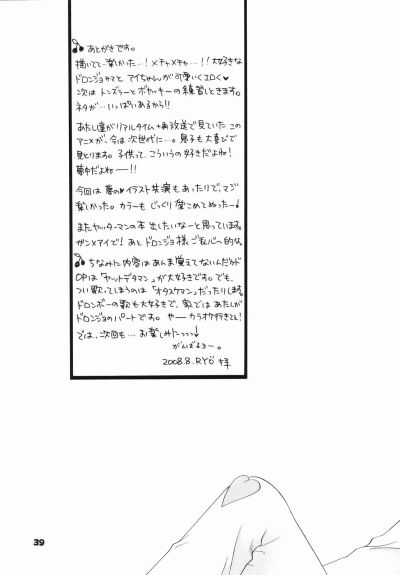 あとがきです。
描いてて…楽しかった…!メチャメチャ…!!大好きな
ドロンジョサマと アイちゃんが可愛いくエロく♥
次は トンズラーと ボヤッキーの練習しときます。
ネタが… いっぱいあるから!!
あたし達がリアルタイム+再放送で見ていた この
アニメが、今は次世代に…。息子も大喜びで
見とります。子供って、こういうの好きだよね!
夢中だよねー!!
今回は 夢の♥イラスト共演もあったりで、マジ
楽しかった。カラーも じっくり 愛こめてぬったー!
またヤッターマンの本 出したいなーと思っています。
ガン×アイで!あと ドロンジョ様、ご乱心的な。
ちなみに 内容は あんま覚えてないんだけど
OPは 「ヤットデタマン」が大好きです。でも、
つい歌ってしまうのは 「オタスケマン」だったりします。
ドロンボーの歌も大好きで、家では あたしが
ドロンジョのパートです。やー カラオケ行きてェ!
では、次回も… お楽しみにっっっ
がんばるよー。
2008.8.RYÖ 拝
39